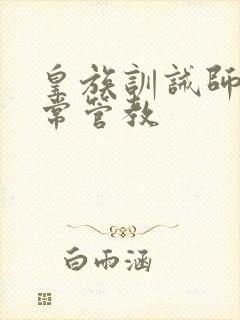 皇族訓誡師
常管教
白雨涵